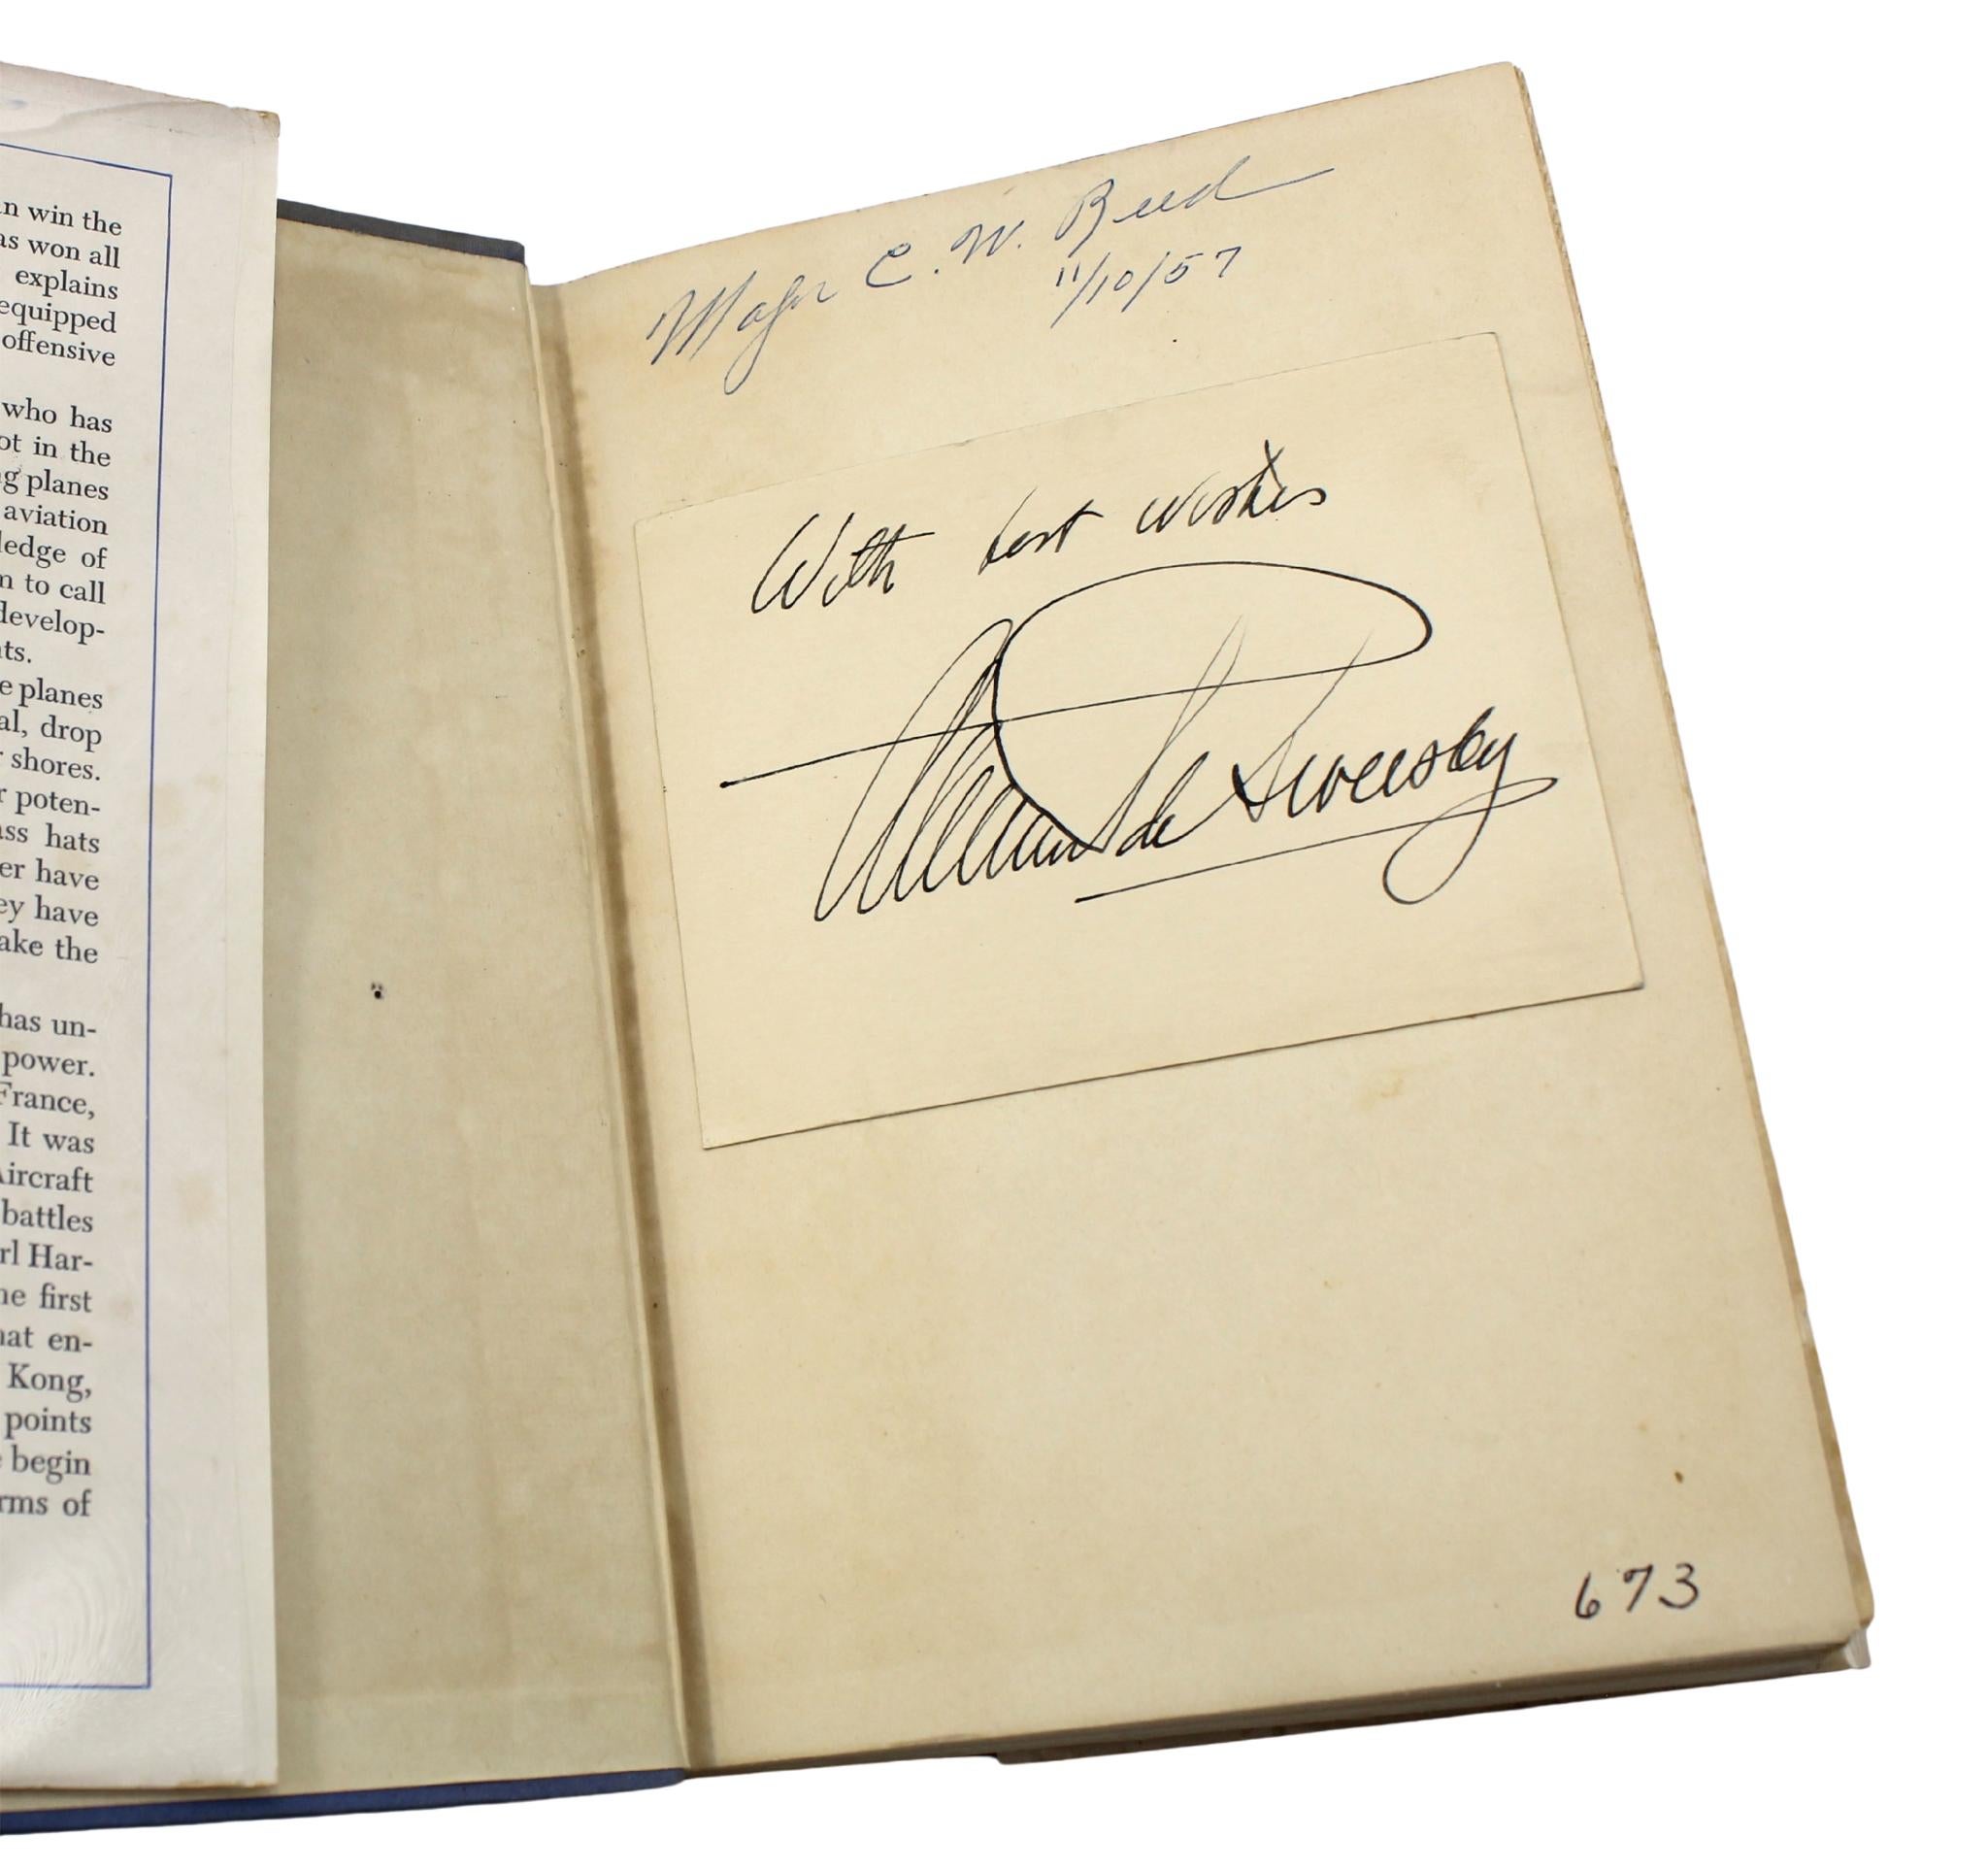 n win the
as won all
explains
equipped
offensive
who has
ot in the
g planes
aviation
ledge of
n to call
develop-
ts.
e planes
al, drop
shores.
r poten-
ass hats
er have
ey have
ake the
has un-
power.
France,
It was
Aircraft
battles
rl Har-
ne first
hat en-
Kong,
points
begin
rms of
Major C. W. Reed
11/10/57
With best wishes
de Seversky
673